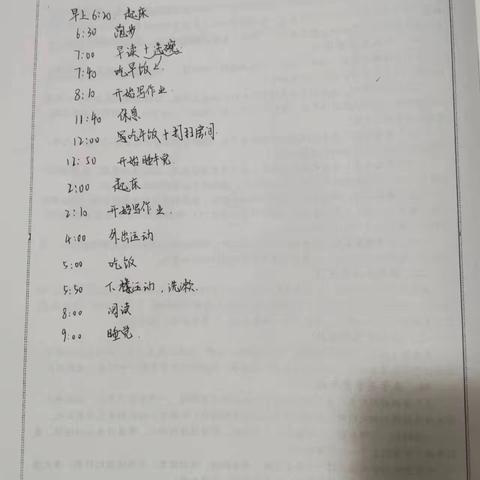 早上6:20 起床
6:30 跑步
7:00 早读+洗漱
7:40 吃早饭
8:10 开始写作业
11:40 休息
12:00 吃午饭+打扫房间
12:50 开始睡午觉
2:00 起床
2:10 开始写作业.
4:00 外出运动
5:00 吃饭
5:50 下楼运动,洗漱.
8:00 阅读
9:00 睡觉.